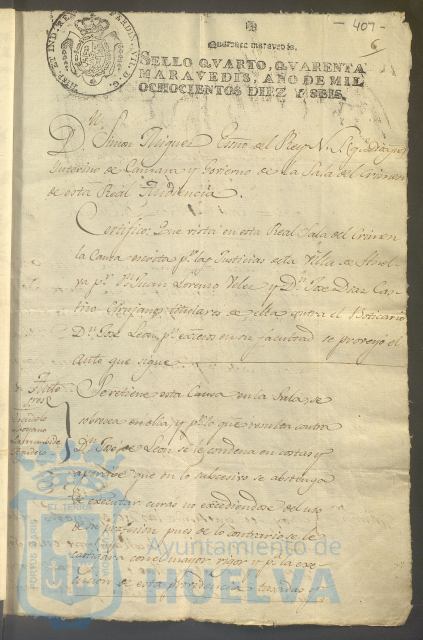 - 407 -
6
Quarenta maravedis.
SELLO QVARTO, QVARENTA
MARAVEDIS, AÑO DE MIL
OCHOCIENTOS DIEZ Y SEIS.
Dn. Simon Miguel Essno del Rey N.
Interino de Camara y Govierno de la Sala del Crimen
de esta Real Audiencia.
Certifico: Que vista en esta Real Sala del Crimen
la Causa escrita pr. las Justicias de esta Villa de Huel
va pr. Dn. Juan Lorenzo Velez y Dn. Jose Diaz Can
tino Cirujanos titulares de ella contra el Boticario
Dn. Jose Leon, pr. excesos en su facultad se proveyo el
auto que sigue
Se retiene esta Causa en la Sala, se
sobresee en ella, y pr. lo que resulta contra
Dn. Jose de Leon, se le condena en costas y
que en lo subcesivo se abstenga
de executar curas no excediendose del uso
de su profesion pues de lo contrario se le
castigara con el mayor rigor y pa. la exe
cucion de esta providencia
Ayuntamiento de
HUELVA
PORTUS MARIS
ET TERRAE